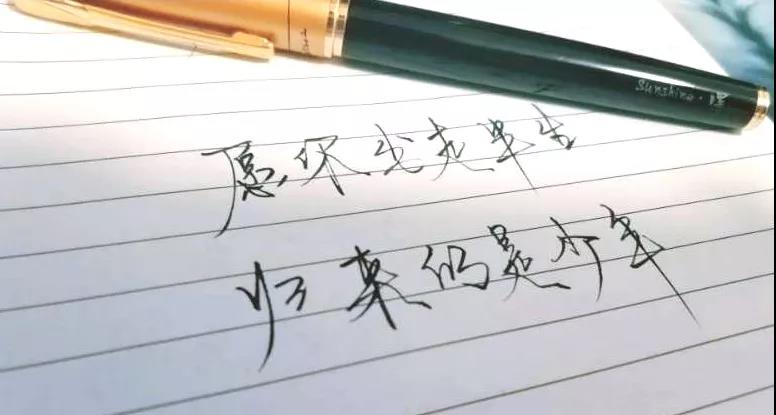 sunshine ·
愿你出走半生
归来仍是少年